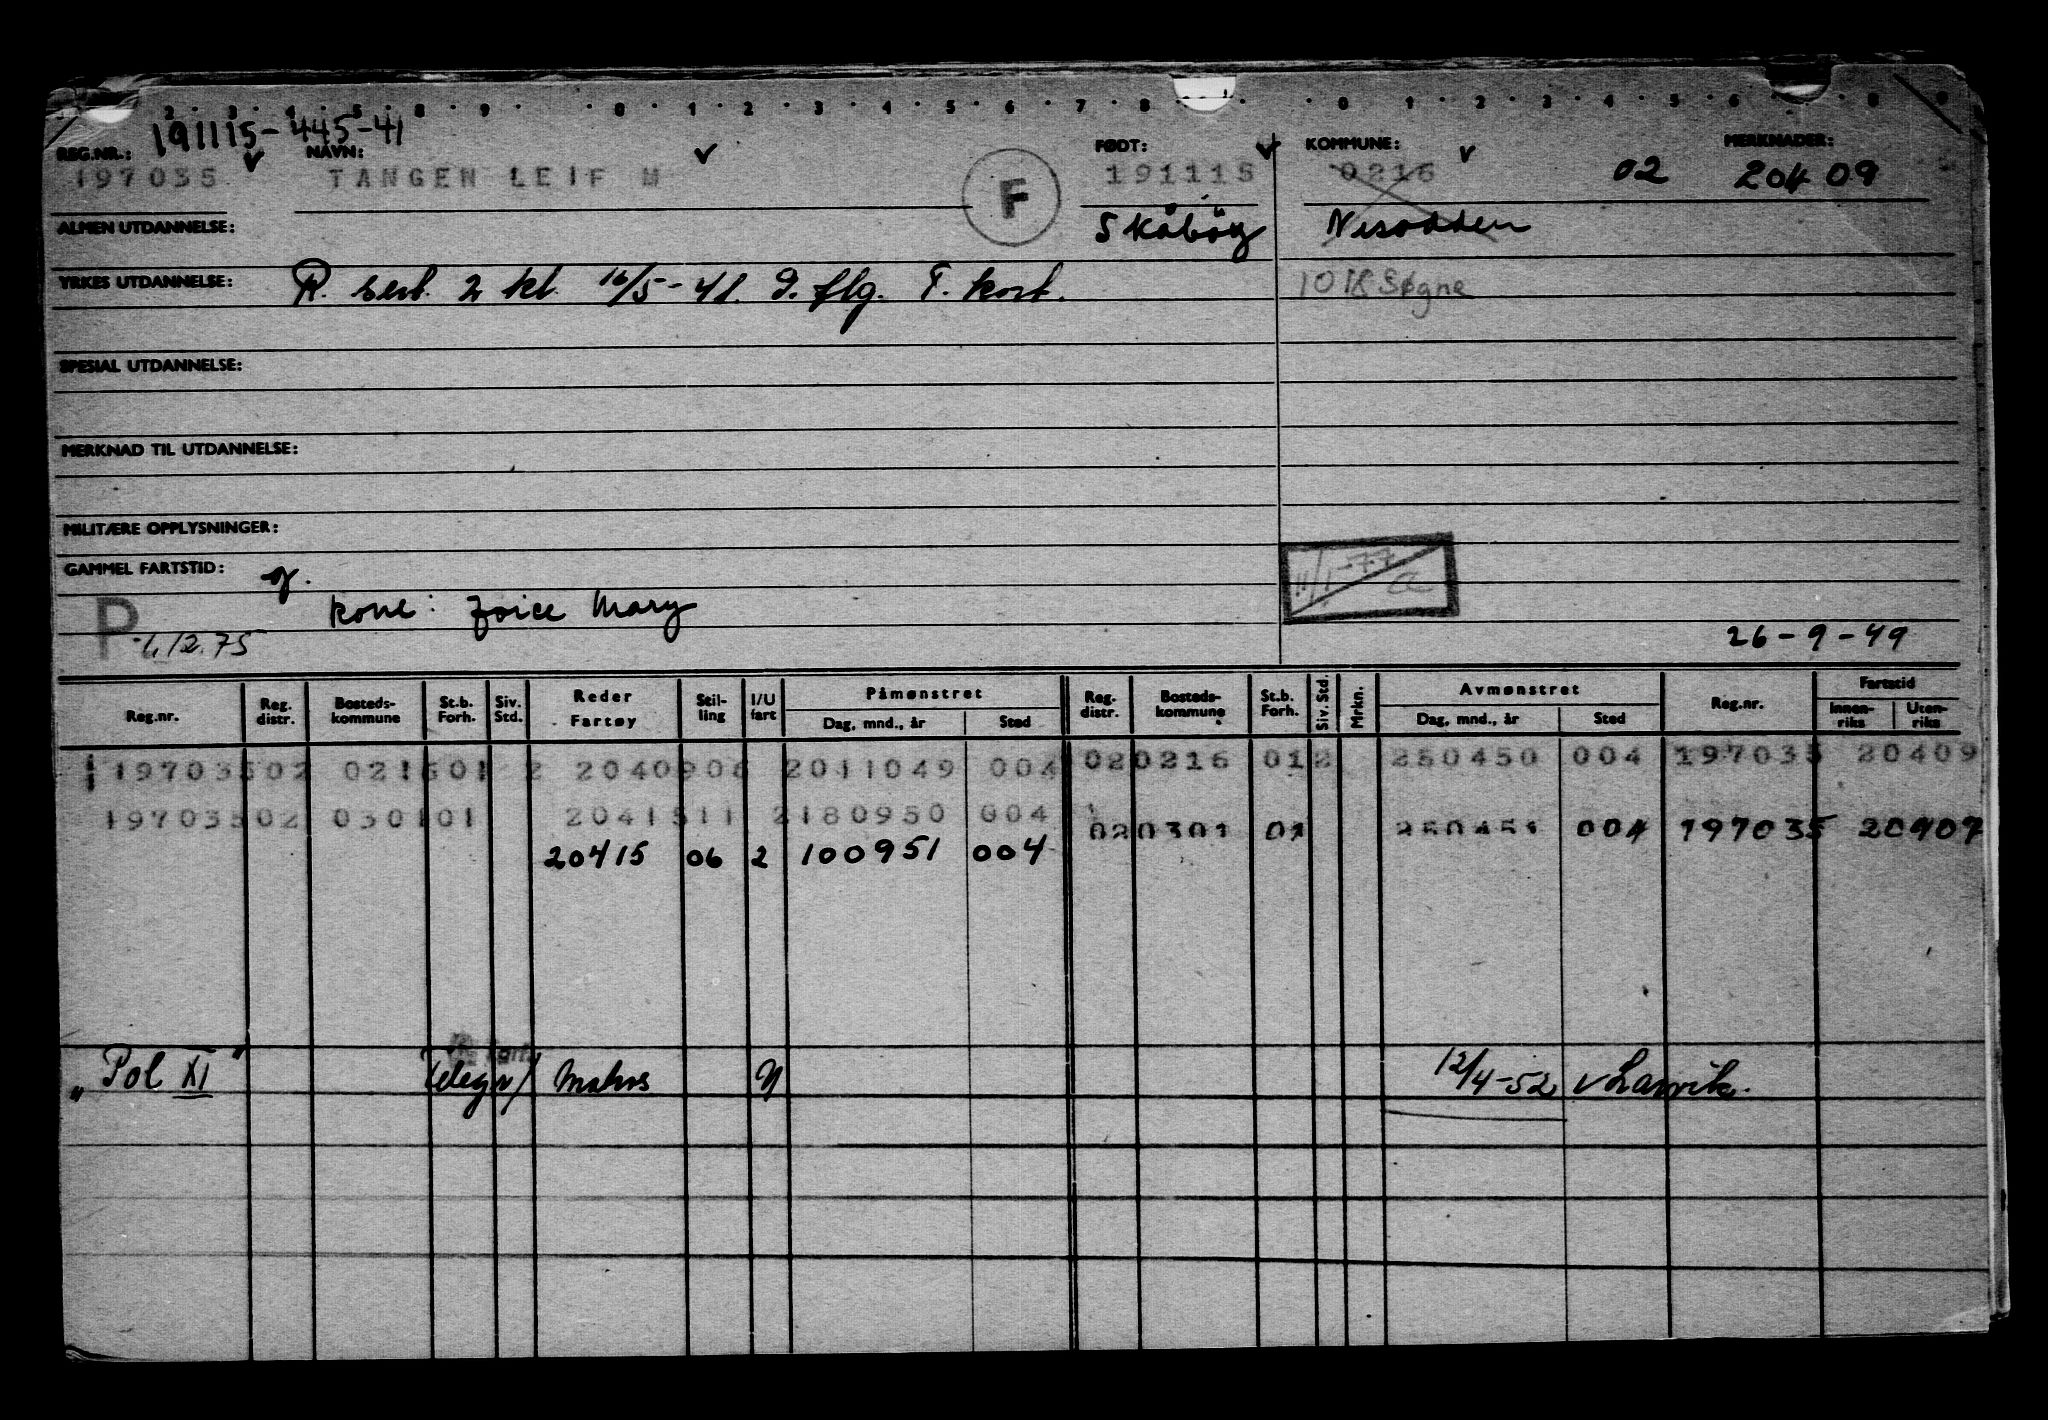 2 3 4 5 8 9 0 1 2 3 4 5 6 7 8 0 1 2 3 4 5 6 8 9
191115-445-41
REG.NR.: NAVN: FØDT: KOMMUNE: MERKNADER:
197035 TANGEN LEIF M F 191115 0216 02 20409
ALMEN UTDANNELSE: Nesodden
YRKES UTDANNELSE: R. sert. 2 kl. 16/5-41. I. flg. F. kort. 1018 Søgne
SPESIAL UTDANNELSE:
MERKNAD TIL UTDANNELSE:
MILITÆRE OPPLYSNINGER:
GAMMEL FARTSTID: g. 11/1-77
kone: Joice Mary
P 1/12.75 26-9-49
Reg.nr. Reg. distr. Bosteds-kommune St.b. Forh. Siv. Std. Reder Fartøy Stil-ling I/U fart Påmønstret Dag, mnd., år Sted Reg. distr. Bosteds-kommune St.b. Forh. Siv. Std. Mrkn. Avmønstret Dag, mnd., år Sted Reg.nr. Fartstid Innen-riks Uten-riks
197035 02 0216 01 2 20409 06 2 011049 004 02 0216 01 2 250450 004 197035 20409
197035 02 0301 01 20415 11 2 180950 004 02 0301 01 250451 004 197035 20409
20415 06 2 100951 004
"Pol XI" Telegr/ U 12/4-52 v Larvik.